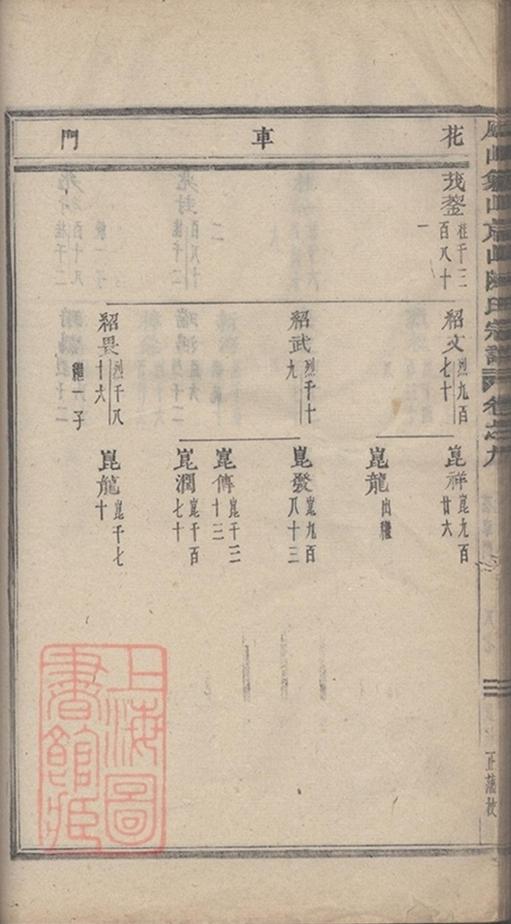 花 車 門
茂鏊 桂千三百八十一
紹文 烈九百七十
紹武 烈千十九
紹畏 烈千八十六 繼一子
崑祥 崑九百廿六
崑龍 出繼
崑發 崑九百八十三
崑傳 崑千三十三
崑潤 崑千百七十
崑龍 崑千七十
陳氏宗譜 卷之九
上海圖書館藏